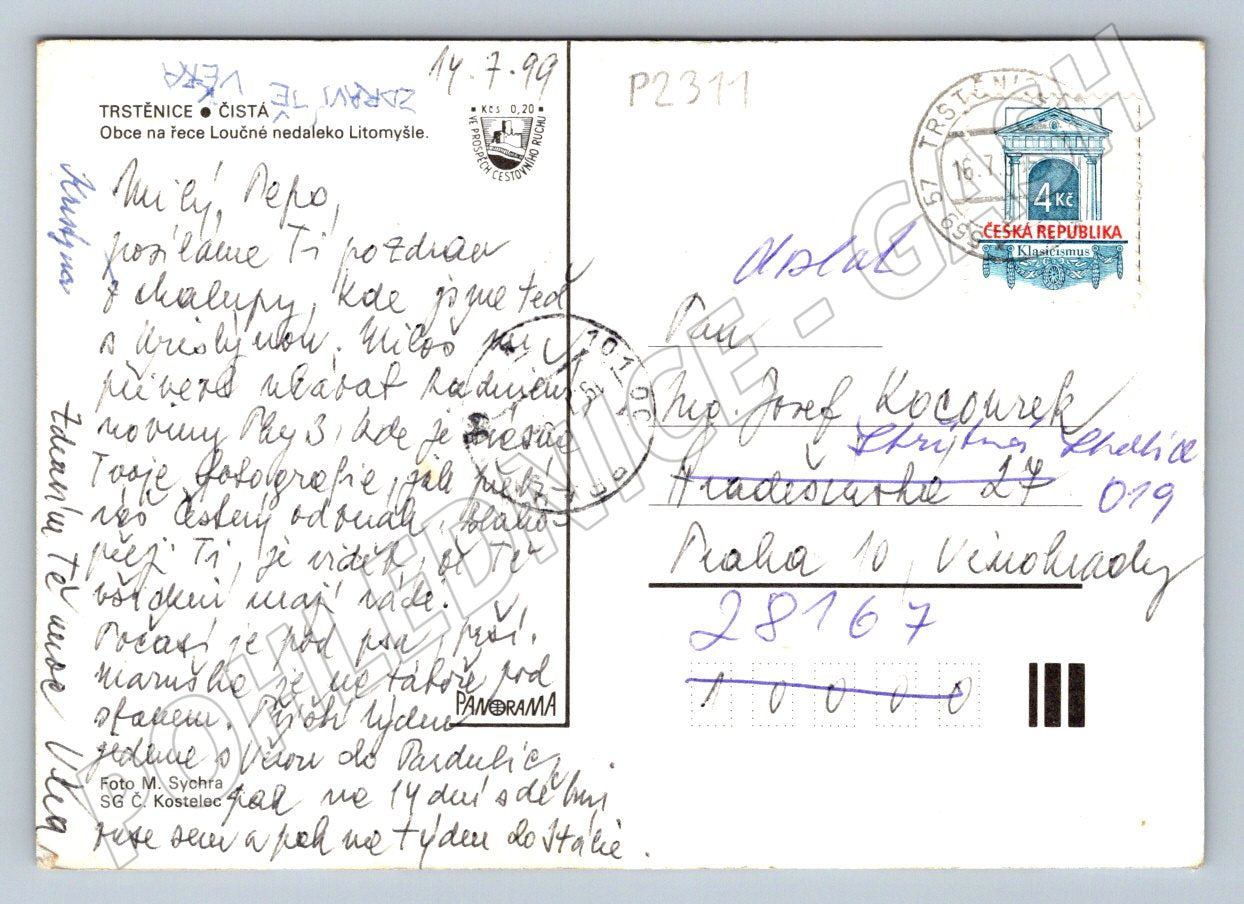 14.7.99
P2311
ZDRAVÍ TĚ
VĚRA
TRSTĚNICE ● ČISTÁ
Obce na řece Loučné nedaleko Litomyšle.
Kčs 0,20
VE PROSPĚCH CESTOVNÍHO RUCHU
Milý Pepo,
posíláme Ti pozdrav
z chalupy, kde jsme teď
s Kristýnou. Miloš mi
přivezl ukázat
noviny Phy 3, kde je
Tvoje fotografie, jak
Čestný odznak. Blaho-
přeji Ti, je vidět, že Tě
všichni mají rádi.
Počasí je pod psa, prší.
Maruška je na táboře pod
stanem. Příští týden
jedeme s Věrou do Pardubic,
pak na 14 dní s dětmi
zase sem a pak na týden do Itálie.
Foto M. Sychra
SG Č. Kostelec
PANORAMA
Kristýna
Zdravím Tě moc Věra
569 57 TRSTĚNICE
16.7.
4 Kč
ČESKÁ REPUBLIKA
Klasicismus
101 00
Doslat
Pan
Ing. Josef Kocourek
Hradešínská 27
019
Praha 10, Vinohrady
28167
10000
POHLEDNICE - GASH